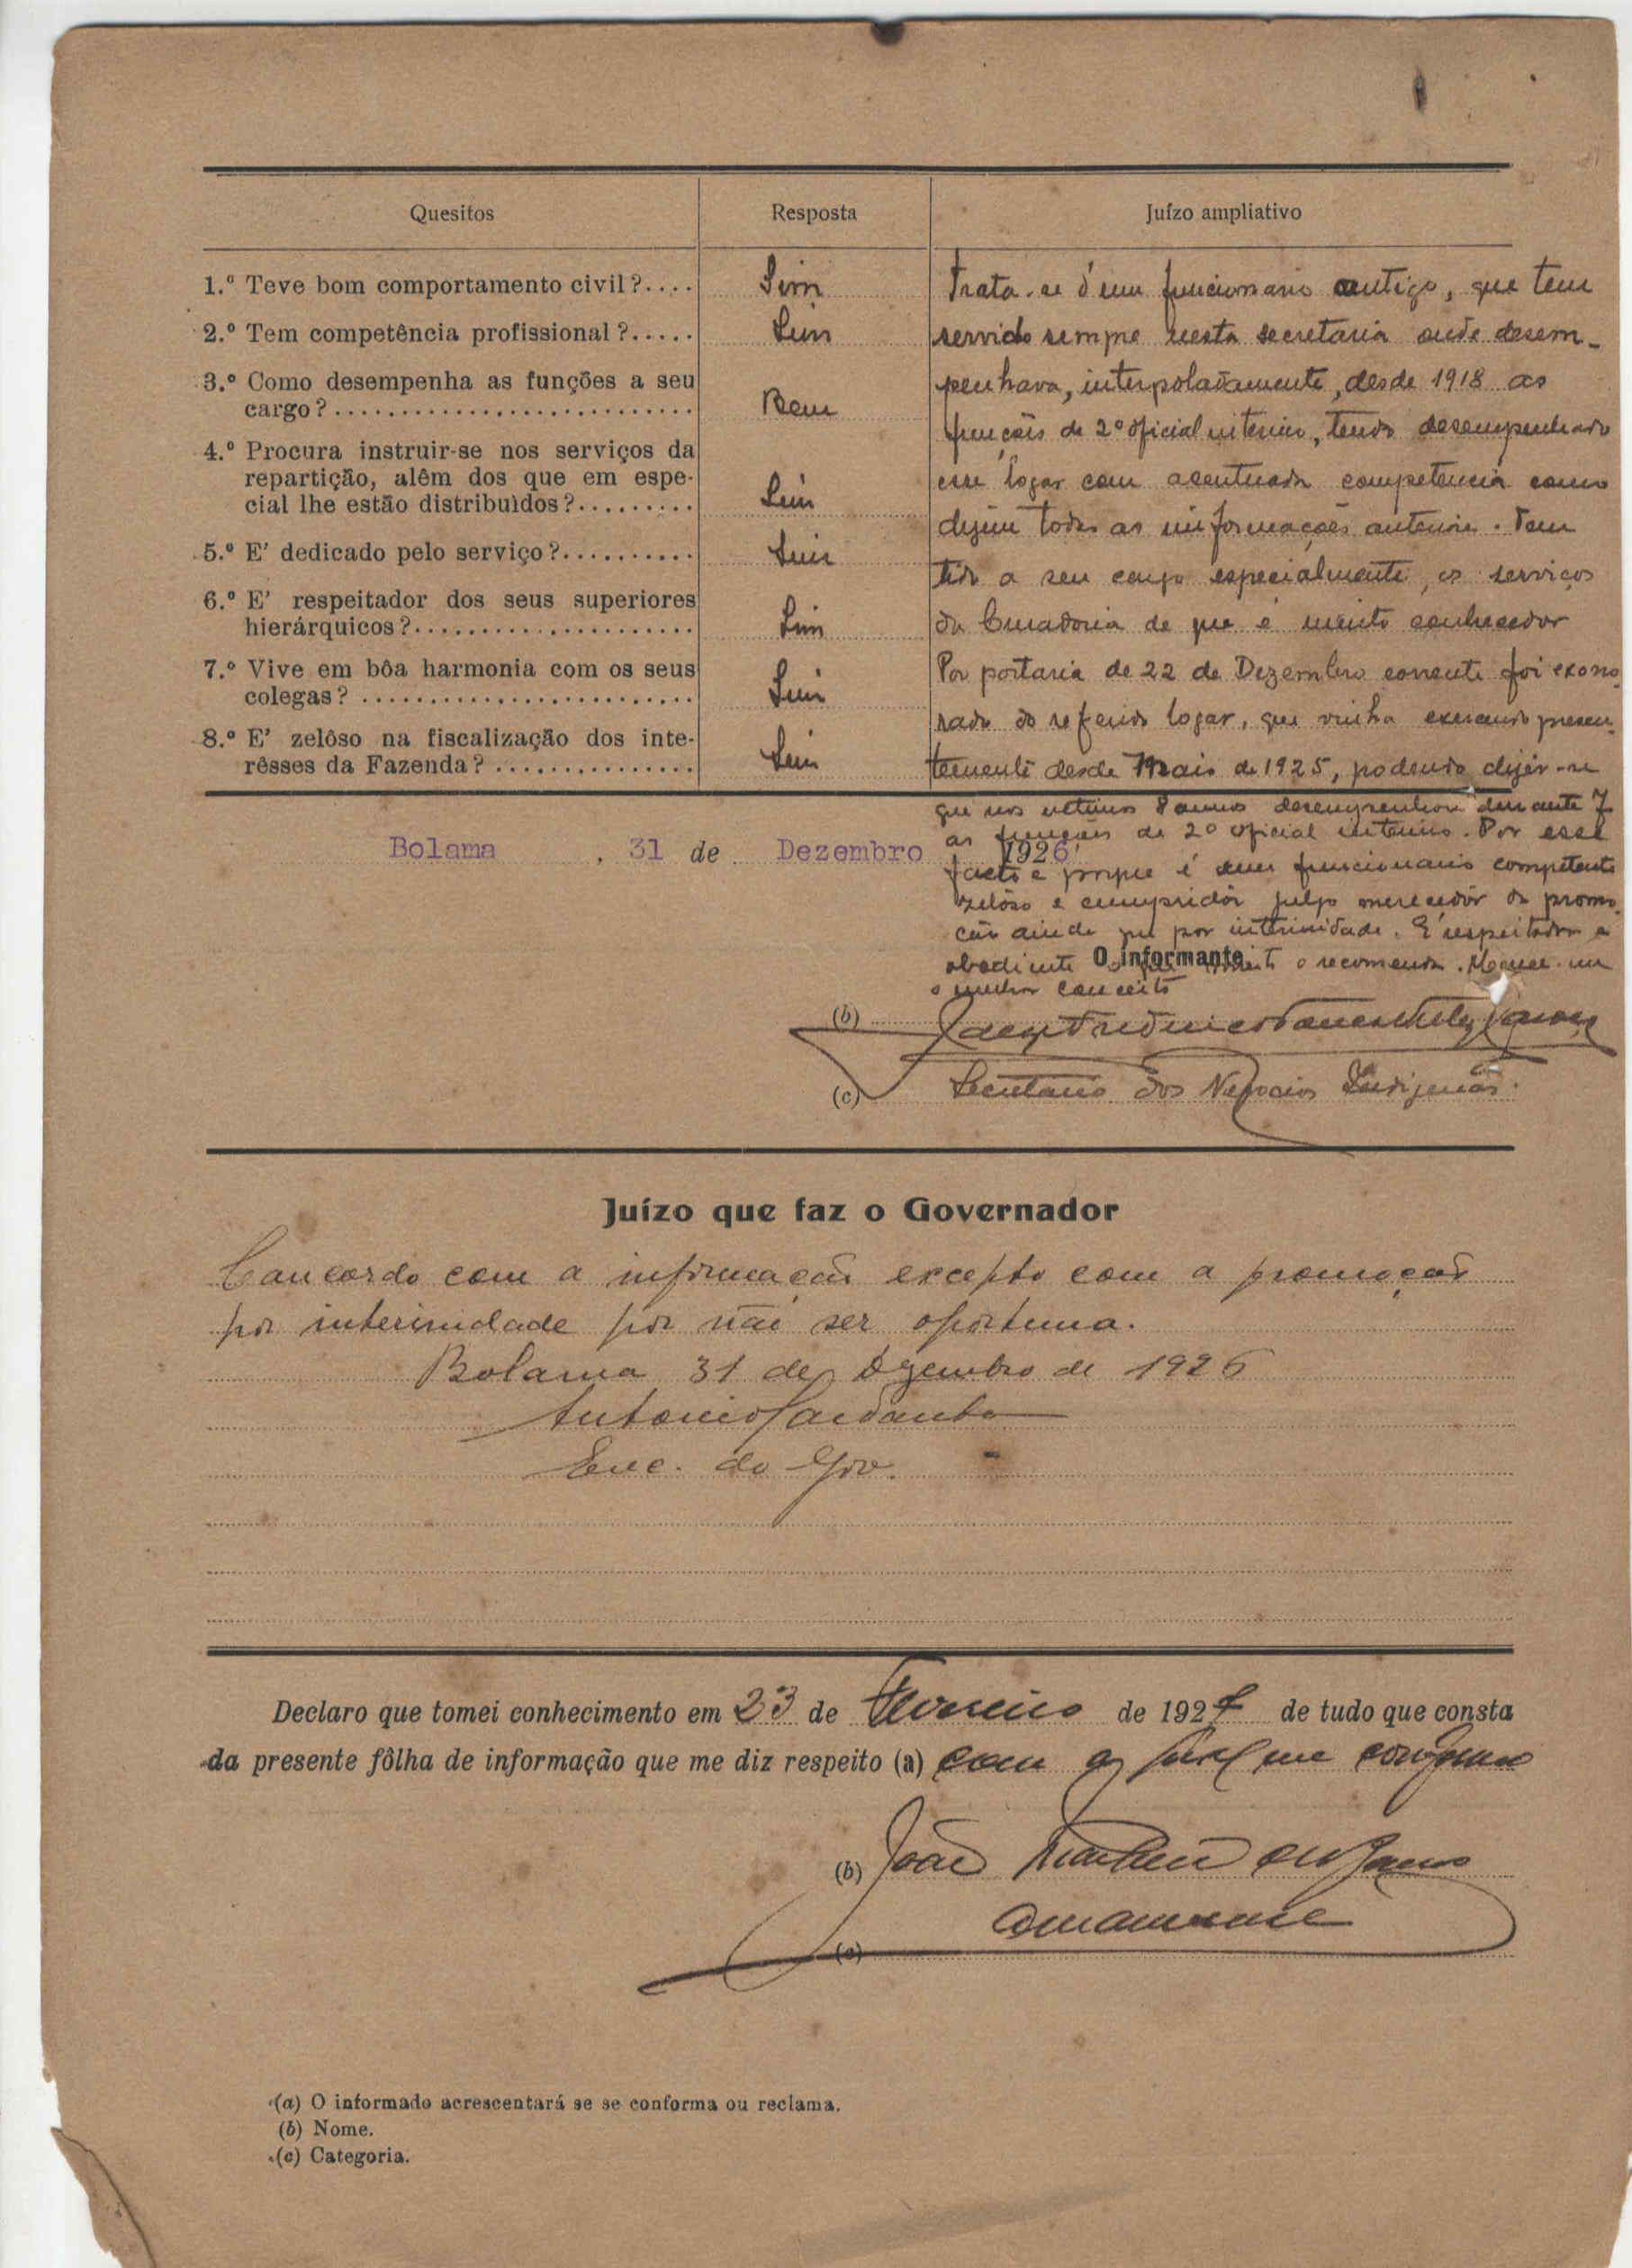 Quesitos
Resposta
Juízo ampliativo
1.º Teve bom comportamento civil?....
Sim
2.º Tem competência profissional?.....
Sim
3.º Como desempenha as funções a seu
cargo?...........................
Bem
4.º Procura instruir-se nos serviços da
repartição, alêm dos que em espe-
cial lhe estão distribuìdos?.........
Sim
5.º E' dedicado pelo serviço?..........
Sim
6.º E' respeitador dos seus superiores
hierárquicos?.....................
Sim
7.º Vive em bôa harmonia com os seus
colegas? .........................
Sim
8.º E' zelôso na fiscalização dos inte-
rêsses da Fazenda? ...............
Sim
Trata-se d'um funcionario antigo, que tem
servido sempre nesta secretaria onde desem-
penhava, interpoladamente, desde 1918 as
funções de 2º oficial interino, tendo desempenhado
esse logar com acentuada competencia como
dizem todas as informações anteriores. Tem
tido a seu cargo especialmente, os serviços
da Curadoria de que é muito conhecedor
Por portaria de 22 de Dezembro corrente foi exone-
rado do referido logar, que vinha exercendo
desde Maio de 1925, podendo dizer-se
que nos ultimos 8 annos desempenhou durante 7
as funções de 2º oficial interino. Por esse
facto e porque é um funcionario competente
zelôso e cumpridôr julgo merecedôr de promo-
ção ainda que por interinidade. É respeitador e
obediente o recomenda. Merece-me
o melhor conceito
Bolama , 31 de Dezembro 1926
O informante
(b)
(c) Secretario dos Negocios Indigenas.
Juízo que faz o Governador
Concordo com a informação excepto com a promoção
por interinidade por não ser oportuna.
Bolama 31 de Dezembro de 1926
Antonio
Enc. do Gov.
Declaro que tomei conhecimento em 23 de Fevereiro de 1927 de tudo que consta
da presente fôlha de informação que me diz respeito (a) com a qual me conformo
(b) João
Amanuense
(c)
(a) O informado acrescentará se se conforma ou reclama.
(b) Nome.
(c) Categoria.